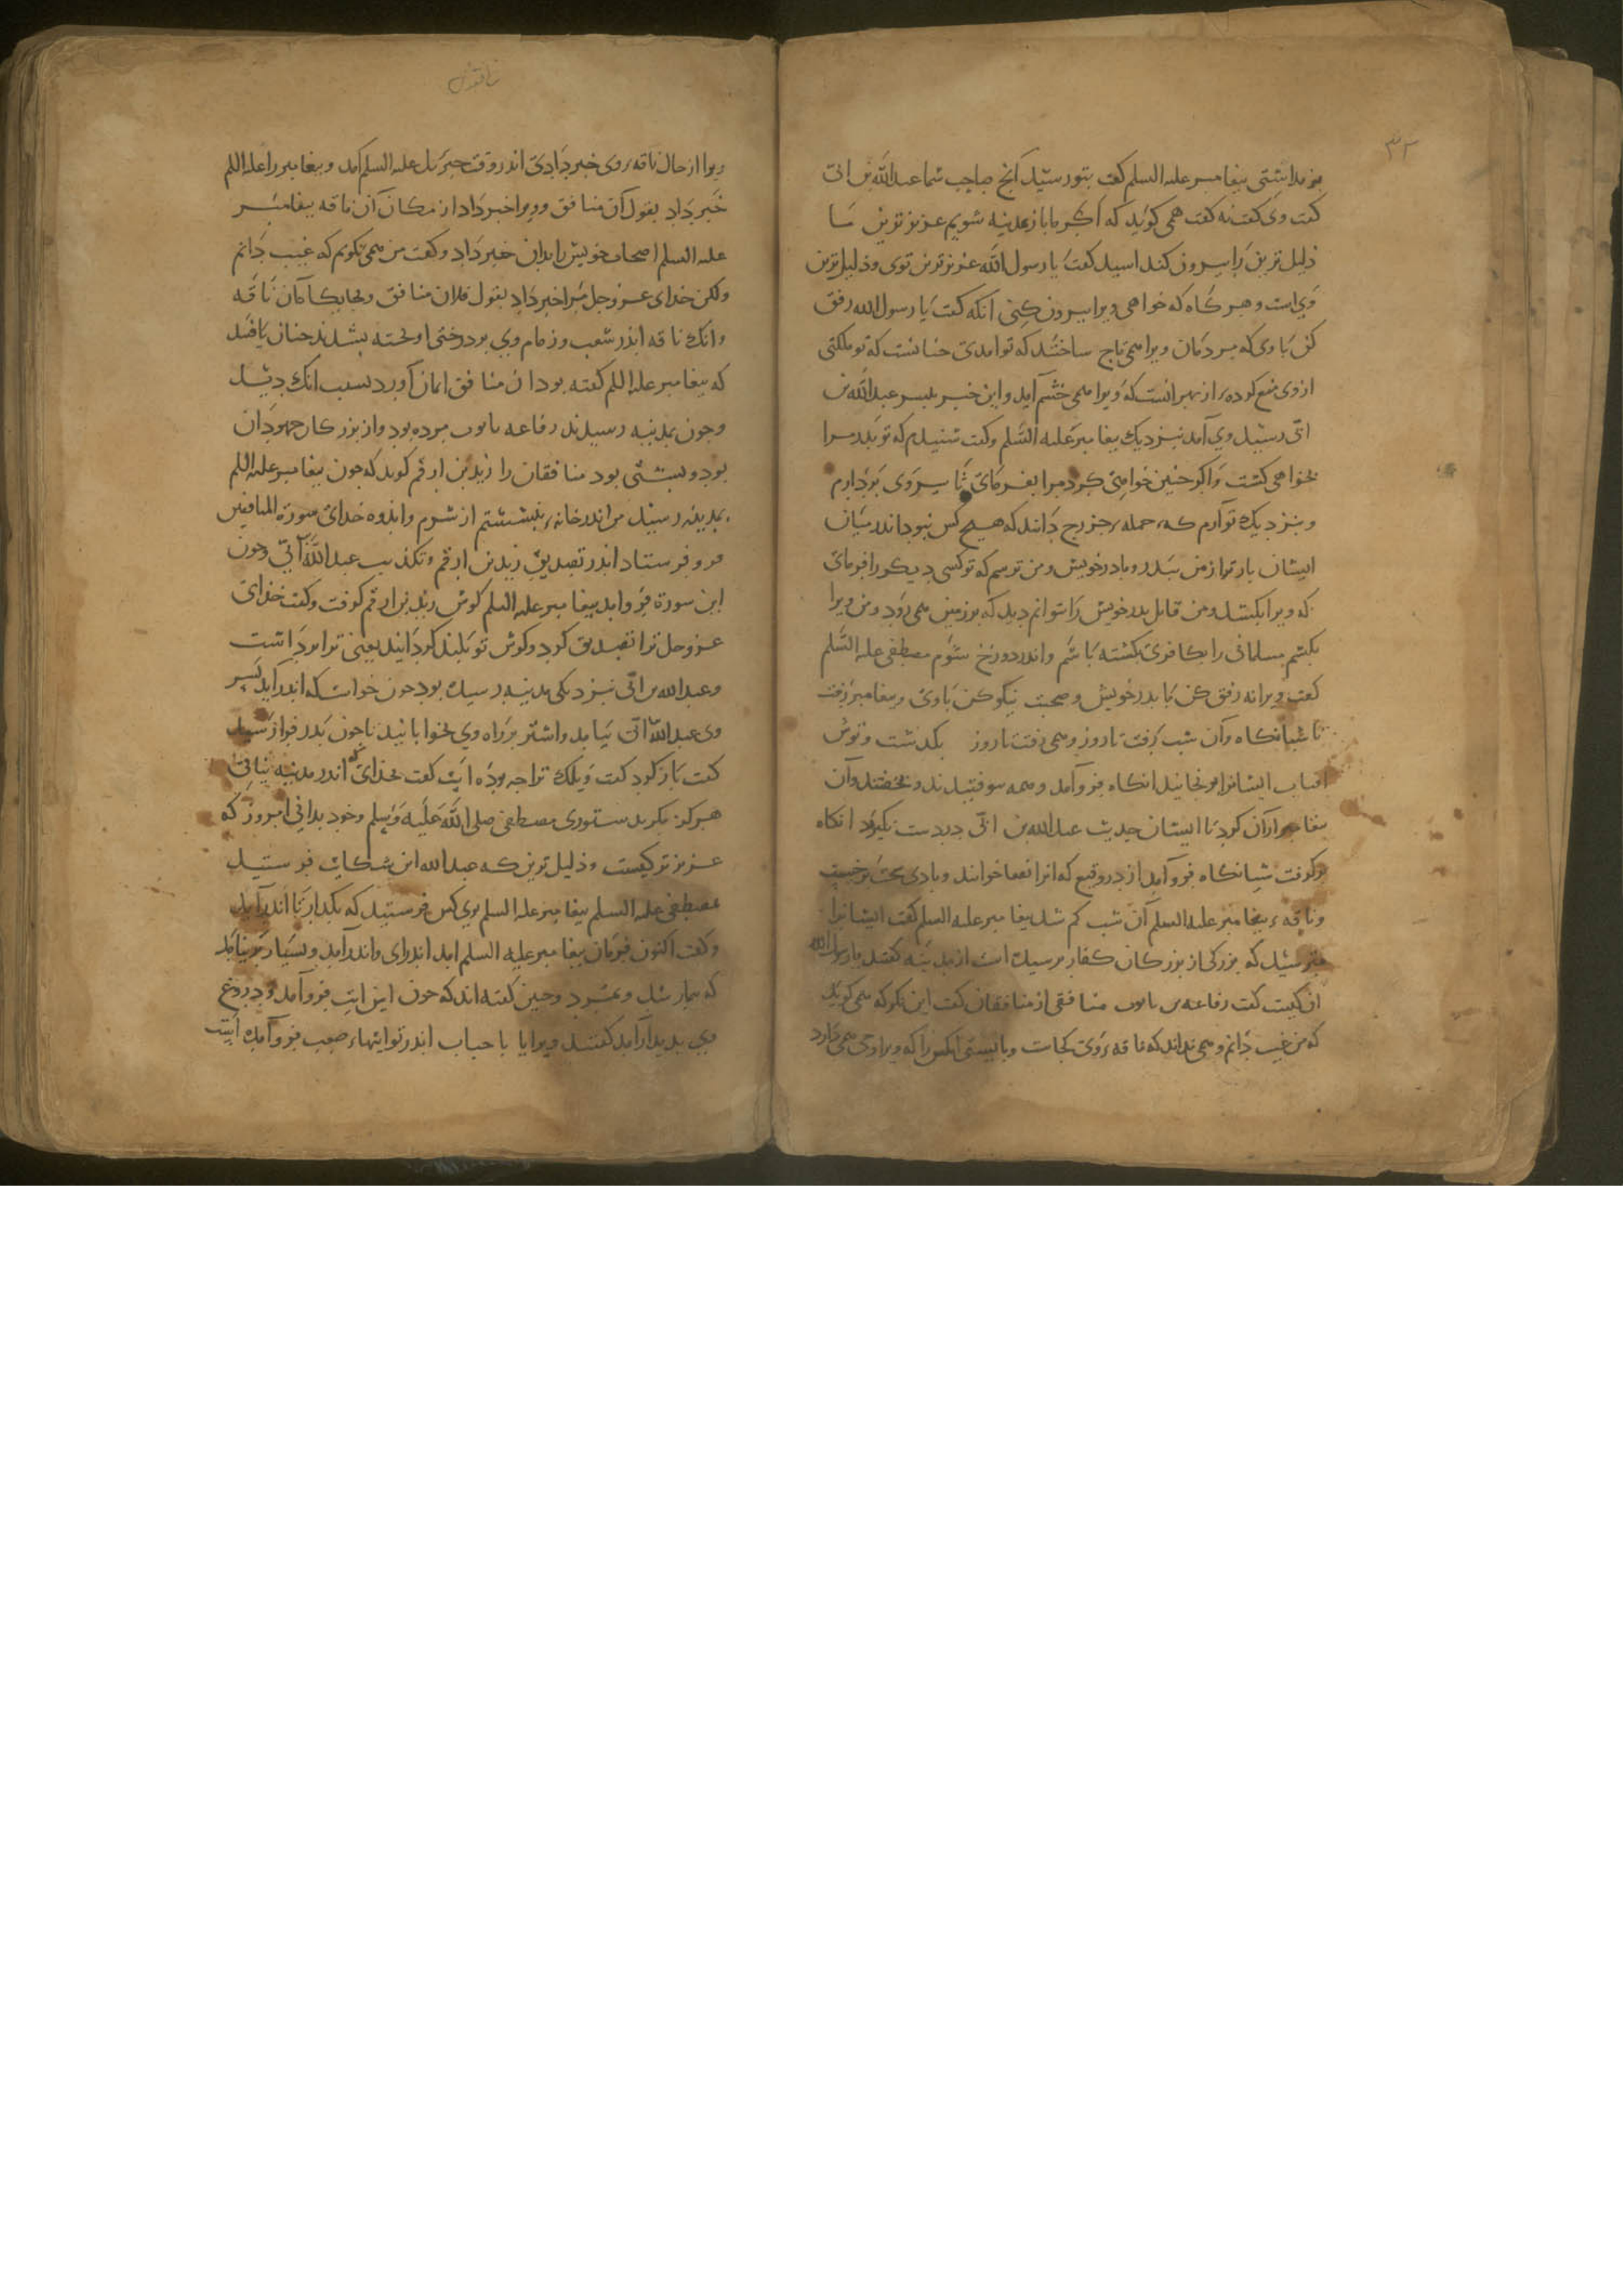 ٣٢
بو ندانستی پیغامبر علیه السلم کفت بتو رسید آنچ صاحب شما عبدالله بن ابی
کفت وی کفت نه کفت همی کوید که اکر ما باز مدینه شویم عزیزترین ما
ذلیل ترین را بیرون کند اسید کفت یا رسول الله عزیزترین توی و ذلیل ترین
وی است و هر کاه که خواهی ویرا بیرون کنی انکه کفت یا رسول الله رفق
کن با وی که مردمان ویرا همی تاج ساختند که تو امدی چنانست که تو ملکتی
از وی منع کرده از بهر انست که ویرا همی خشم آید و این خبر بپسر عبدالله بن
ابی رسید وی آمد نزدیک پیغامبر علیه السلم و کفت شنیدم که تو پدر مرا
بخواهی کشت و اکر چنین خواهی کرد مرا بفرمای تا سر وی بردارم
و بنزدیک تو آرم که جمله خزرج دانند که هیچ کس نبود اندر میان
ایشان بارتر از من بپدر و مادر خویش و من ترسم که تو کسی دیکر را فرمای
که ویرا بکشد و من قاتل پدر خویش را نتوانم دید که بر زمین همی رود و من ویرا
بکشم مسلمانی را بکافری بکشته باشم و اندر دوزخ شوم مصطفی علیه السلم
کفت ویرا نه رفق کن با پدر خویش و صحبت نیکو کن با وی و پیغامبر برفت
تا شبانکاه و آن شب برفت تا روز و همی رفت تا روز بکذشت و توش
افتاب ایشانرا برنجانید انکاه فروآمد و همه بیوفتیدند و بخفتند و آن
پیغامبر از آن کرد تا ایشان حدیث عبدالله بن ابی در دست نکیرند انکاه
برکرفت شبانکاه فروآمد از دروقیع که انرا نقعا خوانند و بادی سخت برخاست
و ناقه پیغامبر علیه السلم آن شب کم شد پیغامبر علیه السلم کفت ایشانرا
مترسید که بزرکی از بزرکان کفار مرسیده است از مدینه کفتند یا رسول الله
ان کیست کفت رفاعه بن تابوت منافقی از منافقان کفت این نکر که همی کوید
که من غیب دانم و همی نداند که ناقه وی کجاست و بایستی انکس را که ویرا وحی همی آرد
ویرا از حال ناقه وی خبر دادی اندر وقت جبرئیل علیه السلم آمد و پیغامبر را علیه السلم
خبر داد بقول آن منافق و ویرا خبر داد از مکان آن ناقه پیغامبر
علیه السلم اصحاب خویش را بدان خبر داد و کفت من همی نکویم که غیب دانم
ولکن خدای عزوجل مرا خبر داد بقول فلان منافق و بجایکاه آن ناقه
و انک ناقه اندر شعب و زمام وی بر درختی اوخته بشدند چنان یافتند
که پیغامبر علیه السلم کفته بود ان منافق ایمان آورد بسبب انک دید
و چون بمدینه رسیدند رفاعه تابوت مرده بود و از بزرکان جهودان
بود و پشتی بود منافقان را زید بن ارقم کوید که چون پیغامبر علیه السلم
بمدینه رسید من اندر خانه بنشستم از شرم و اندوه خدای سورة المنافقین
فرو فرستاد اندر تصدیق زید بن ارقم و تکذیب عبدالله ابی و چون
این سورة فروامد پیغامبر علیه السلم کوش زید بن ارقم کرفت و کفت خدای
عزوجل ترا تصدیق کرد و کوش تو بلند کردانید یعنی ترا برداشت
و عبدالله بن ابی نزدیکی مدینه رسیده بود چون خواست که اندر آید پسر
وی عبدالله ابی بیامد و اشتر بر راه وی بخوابانید تا چون پدر فراز رسید
کفت باز کرد کفت ویلک ترا چه بوده است کفت بخدای که اندر مدینه نیائی
هرکز مکر بدستوری مصطفی صلی الله علیه وسلم و خود بدانی امروز که
عزیزتر کیست و ذلیل ترین که عبدالله این شکایت فرستید
مصطفی علیه السلم پیغامبر علیه السلم بوی کس فرستید که بکذار تا اندر آید
و کفت اکنون فرمان پیغامبر علیه السلم امد اندر ای و اندر آمد و بسیار بر نیامد
که بیمار شد و بمرد و چنین کفته اند که چون این ایت فروآمد و دروغ
وی بدیدار آمد کفتند ویرا یا با حباب اندر تو ایتهاء صعب فروآمده است